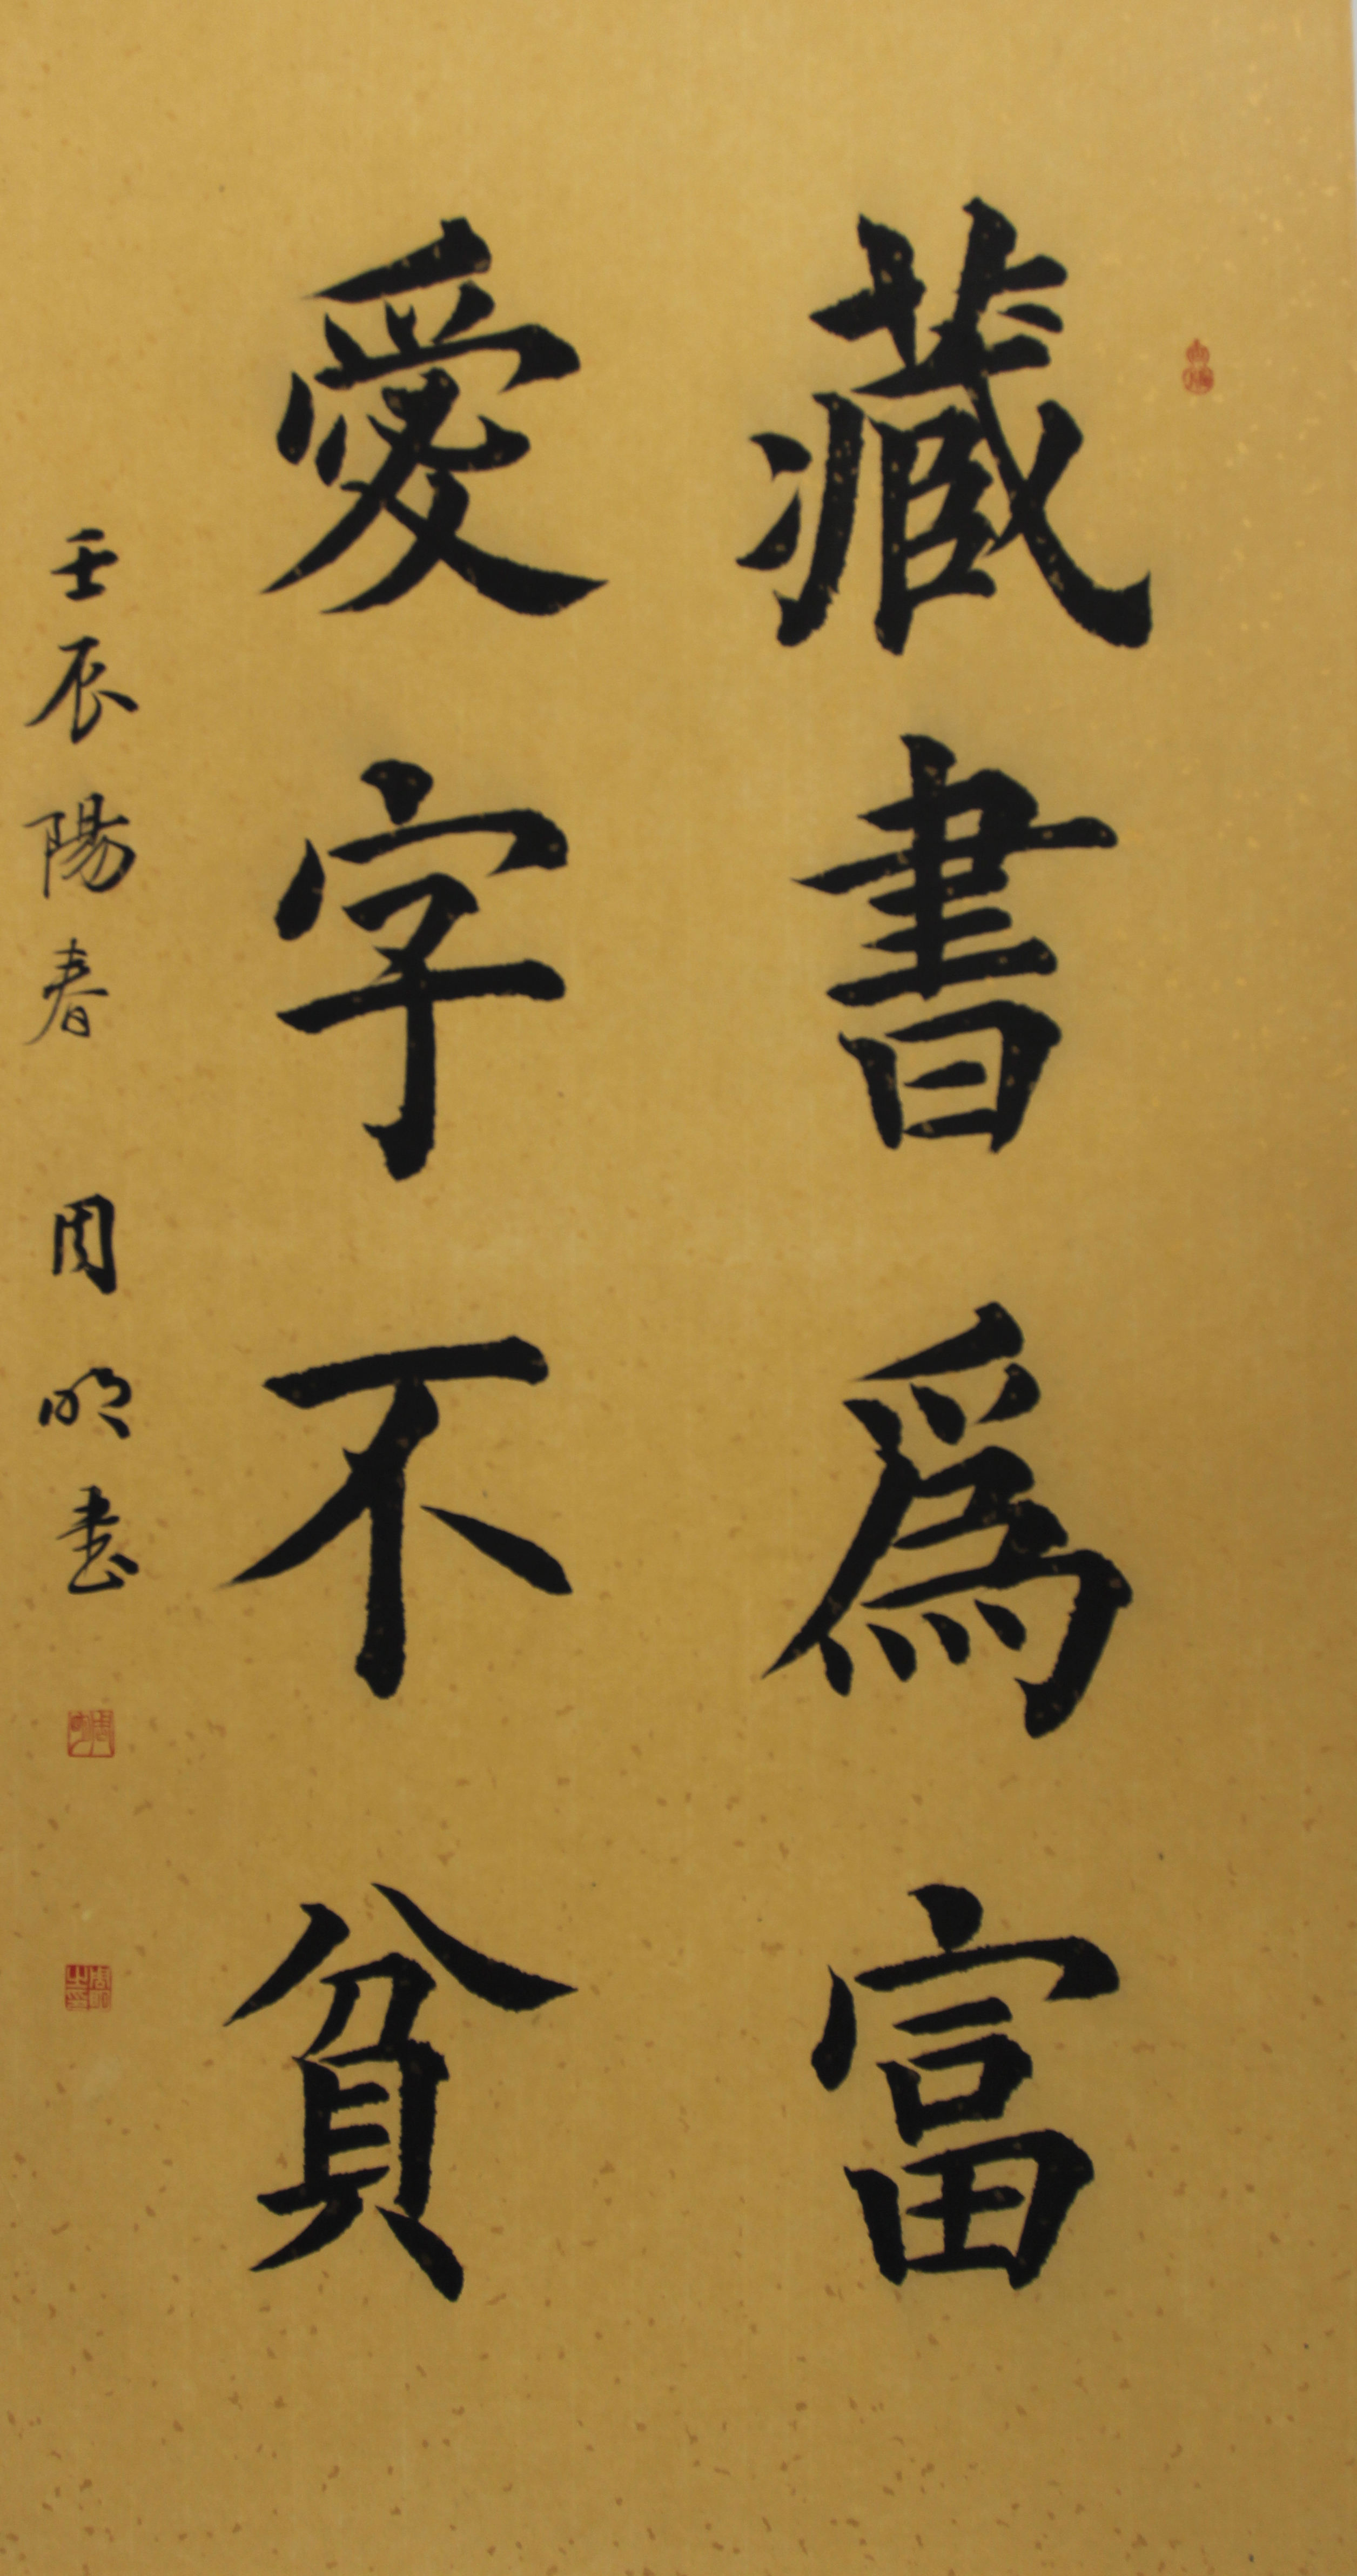 藏書爲富
愛字不貧
壬辰陽春 周明书